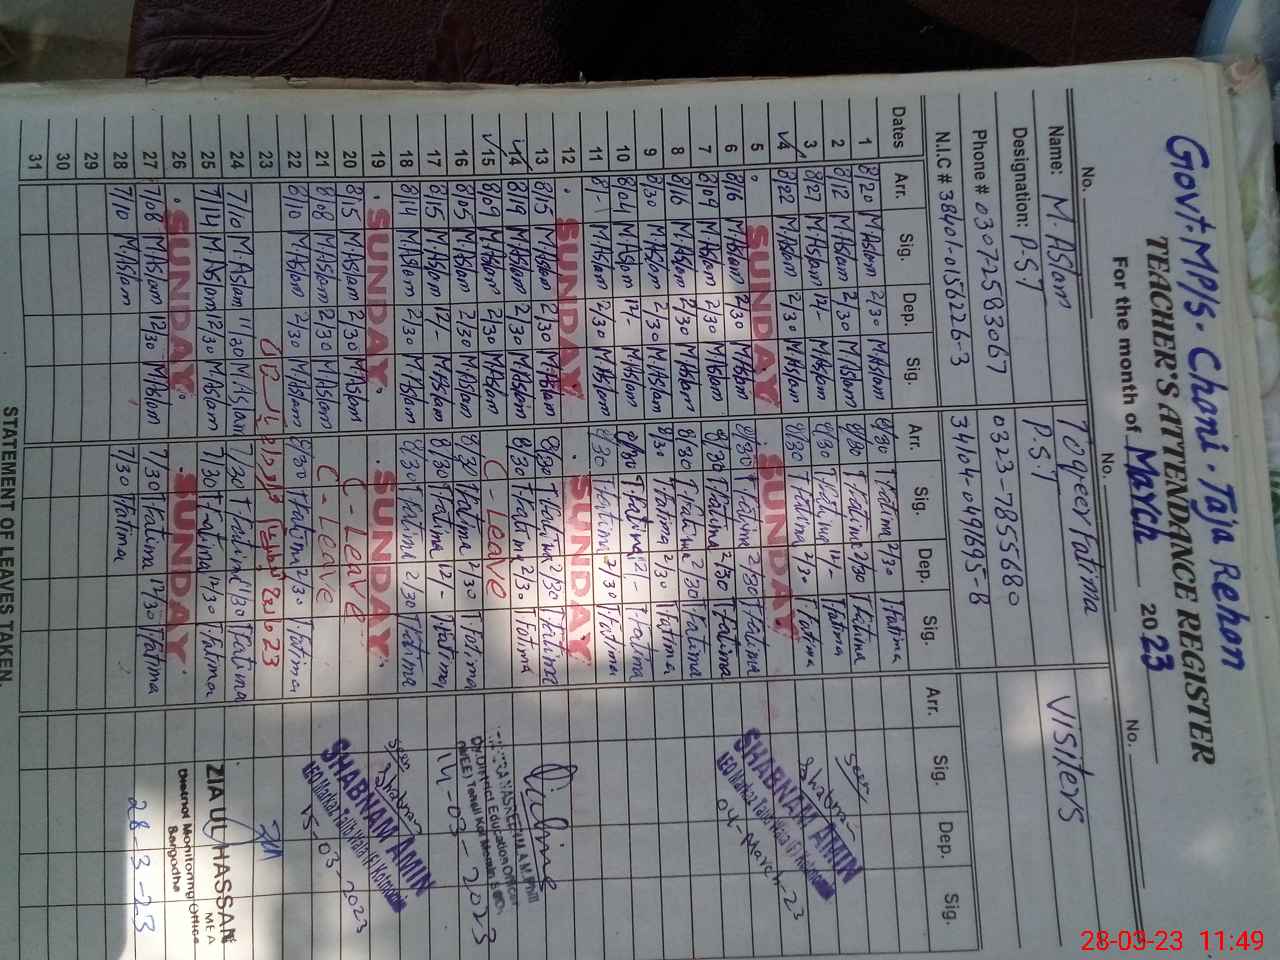 Govt. MP/S. Choni. Taja Rehon
TEACHER'S ATTENDANCE REGISTER
For the month of March 2023
No. No. No.
Name: M. Aslam Toqeer Fatima Visiters
Designation: P.S.T P.S.T
Phone # 03072583067 0323-7855680
N.I.C # 38401-0156226-3 34104-049695-8
Dates Arr. Sig. Dep. Sig. Arr. Sig. Dep. Sig. Arr. Sig. Dep. Sig.
1 8/20 M.Aslam 2/30 M.Aslam 8/30 T.Fatima 2/30 T.Fatima
2 8/12 M.Aslam 2/30 M.Aslam 8/30 T.Fatima 2/30 T.Fatima Seen
3 8/27 M.Aslam 12/- M.Aslam 8/30 T.Fatima 12/- T.Fatima
4 8/22 M.Aslam 2/30 M.Aslam 8/30 T.Fatima 2/30 T.Fatima SHABNAM AMIN
5 SUNDAY SUNDAY 04-March-23
6 8/16 M.Aslam 2/30 M.Aslam 8/30 T.Fatima 2/30 T.Fatima
7 8/09 M.Aslam 2/30 M.Aslam 8/30 T.Fatima 2/30 T.Fatima
8 8/16 M.Aslam 2/30 M.Aslam 8/30 T.Fatima 2/30 T.Fatima
9 8/30 M.Aslam 2/30 M.Aslam 8/30 T.Fatima 2/30 T.Fatima
10 8/04 M.Aslam 12/- M.Aslam 8/30 T.Fatima 12/- T.Fatima
11 8/- M.Aslam 2/30 M.Aslam 8/30 T.Fatima 2/30 T.Fatima
12 SUNDAY SUNDAY
13 8/15 M.Aslam 2/30 M.Aslam 8/30 T.Fatima 2/30 T.Fatima
14 8/19 M.Aslam 2/30 M.Aslam 8/30 T.Fatima 2/30 T.Fatima
15 8/09 M.Aslam 2/30 M.Aslam C-Leave Dy. District Education Officer
16 8/05 M.Aslam 2/30 M.Aslam 8/30 T.Fatima 2/30 T.Fatima 14-03-2023
17 8/15 M.Aslam 12/- M.Aslam 8/30 T.Fatima 12/- T.Fatima
18 8/14 M.Aslam 2/30 M.Aslam 8/30 T.Fatima 2/30 T.Fatima Seen
19 SUNDAY SUNDAY
20 8/15 M.Aslam 2/30 M.Aslam C-Leave SHABNAM AMIN
21 8/08 M.Aslam 2/30 M.Aslam C-Leave 15-03-2023
22 8/10 M.Aslam 2/30 M.Aslam 8/30 T.Fatima 2/30 T.Fatima
23 23
24 7/10 M.Aslam 11/30 M.Aslam 7/30 T.Fatima 11/30 T.Fatima
25 7/14 M.Aslam 12/30 M.Aslam 7/30 T.Fatima 12/30 T.Fatima ZIA UL HASSAN
MEA
26 SUNDAY SUNDAY District Monitoring Office
Sargodha
27 7/08 M.Aslam 12/30 M.Aslam 7/30 T.Fatima 12/30 T.Fatima 28-3-23
28 7/10 M.Aslam 7/30 T.Fatima
29
30
31
STATEMENT OF LEAVES TAKEN.
28-03-23 11:49